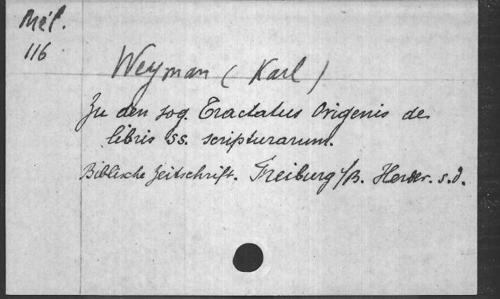 Mél.
116
Weyman (Karl)
Zu den sog. Tractatus Origenis de
libris ss. scripturarum.
Biblische Zeitschrift. Freiburg i/B. Herder. s.d.